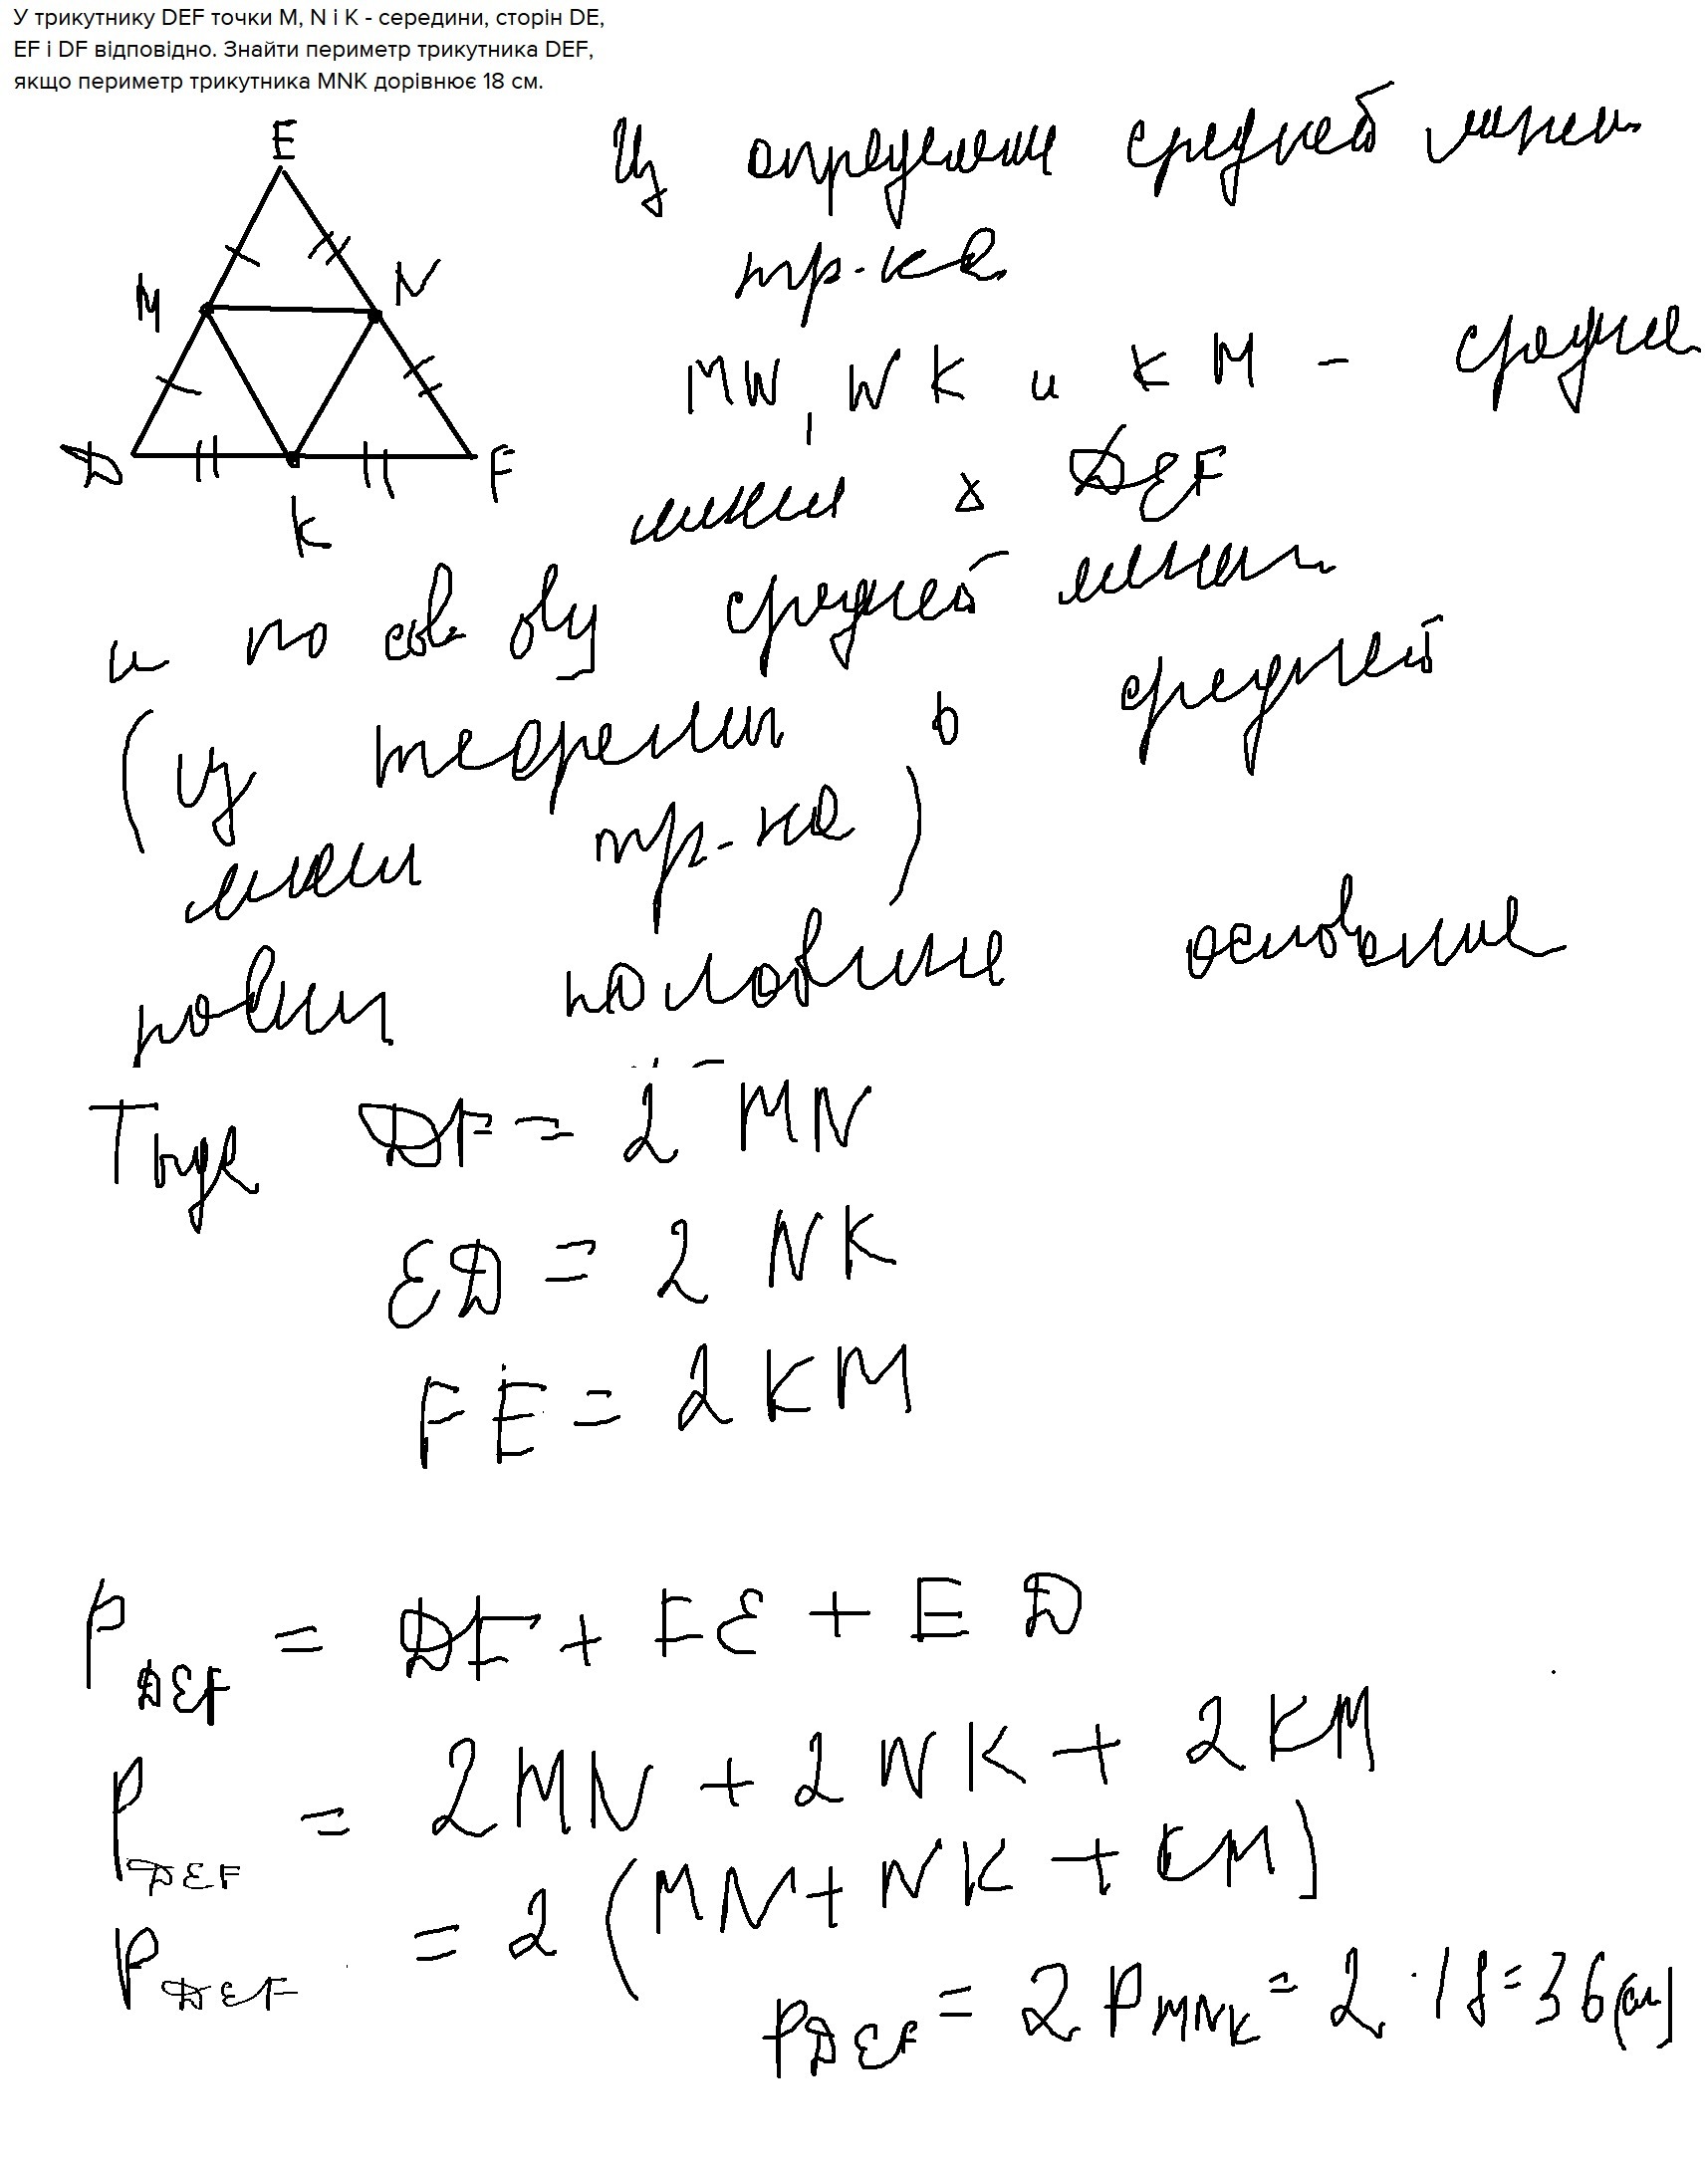 У трикутнику DEF точки M, N і K - середини, сторін DE,
EF і DF відповідно. Знайти периметр трикутника DEF,
якщо периметр трикутника MNK дорівнює 18 см.
E
M
N
D
F
K
Из определения средней линии
тр-ка
MN, NK и KM - средние
линии Δ DEF
и по св-ву средней линии
(из теоремы о средней
линии тр-ка)
равны половине основания
Тогда DF = 2 MN
ED = 2 NK
FE = 2 KM
P DEF = DF + FE + ED
P DEF = 2MN + 2NK + 2KM
P DEF = 2 (MN + NK + KM)
P DEF = 2 P MNK = 2 · 18 = 36 (см)